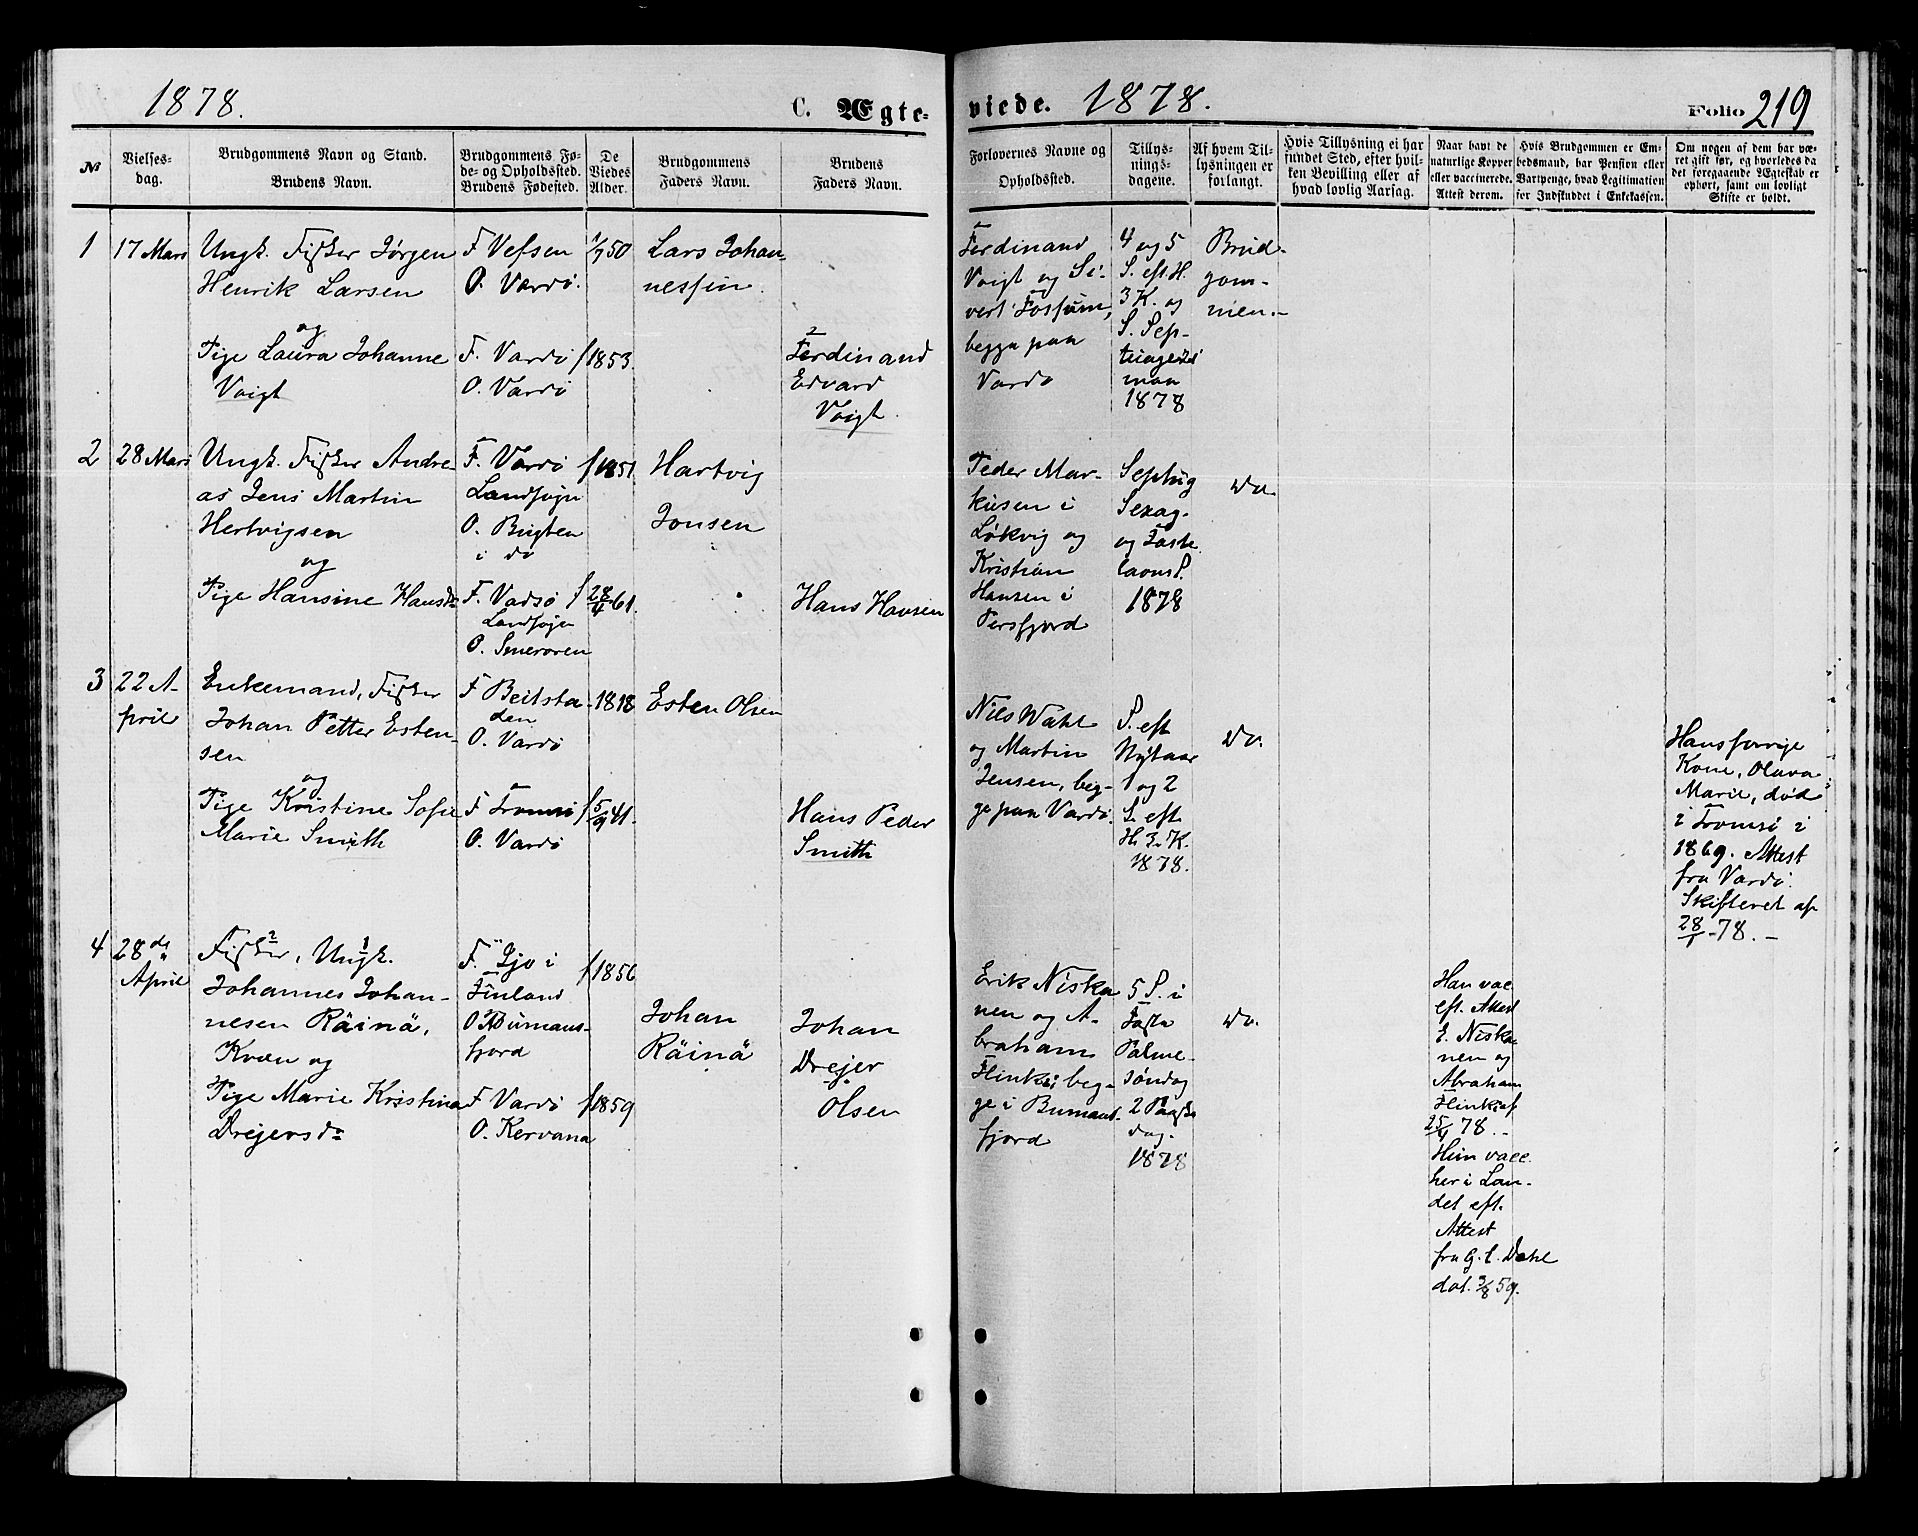 1878.
C. Ægte-
viede. 1878.
Folio 219
№
Vielses-
dag.
Brudgommens Navn og Stand.
Brudens Navn.
Brudgommens Fø-
de- og Opholdssted.
Brudens Fødested.
De
Viedes
Alder.
Brudgommens
Faders Navn.
Brudens
Faders Navn.
Forlovernes Navne og
Opholdssted.
Tillys-
nings-
dagene.
Af hvem Til-
lysningen er
forlangt.
Hvis Tillysning ei har
fundet Sted, efter hvil-
ken Bevilling eller af
hvad lovlig Aarsag.
Naar havt de
naturlige Kopper
eller vaccinerede.
Attest derom.
Hvis Brudgommen er Em-
bedsmand, har Pension eller
Vartpenge, hvad Legitimation
for Indskuddet i Enkekassen.
Om nogen af dem har væ-
ret gift før, og hvorledes da
det foregaaende Ægteskab er
ophørt, samt om lovligt
Skifte er holdt.
1
17 Mars
Ungk. Fisker Jørgen
Henrik Larsen
og
Pige Laura Johanne
Voigt
F Vefsen
O. Vardö.
F. Vardö
O. Vardö
1/7 50
f 1853.
Lars Johan-
nessen.
Ferdinand
Edvard
Voigt.
Ferdinand
Voigt og Si-
vert Fossum,
begge paa
Vardö
4 og 5
S. eft. H.
3 K. og
S. Sep-
tuagesi
man
1878
Brud-
gom-
men.-
2
28 Mars
Ungk. Fisker Andre-
as Jens Martin
Hertvigsen
og
Pige Hansine Hansdr
F. Vardö
Landsogn
O. Bugten
i do
F. Vadsö
Landsogn
O. Smeroren
f 1851
f 28/4 61.
Hartvig
Jonsen
Hans Hansen
Peder Mar-
kusen i
Lökvig og
Kristian
Hansen i
Persfjord
Septug
Sexag.
og Faste
lavns S.
1878
do.
3
22 A-
pril
Enkemand, Fisker
Johan Petter Esten-
sen
og
Pige Kristine Sofie
Marie Smith
F Beitsta-
den
O. Vardö
F Tromsö
O. Vardö
1818
f 5/9 41.
Esten Olsen
Hans Peder
Smith
Nils Wahl
og Martin
Jensen, beg-
ge paa Vardö.
S. eft
Nytaar
1 og 2
S. eft.
H. 3. K.
1878.
do.
Hans forrige
Kone, Oluva
Marie, död
i Tromsö i
1869. Attest
fra Vardö
Skifteret af
28/1 - 78. -
4
28 de
April
Fisker, Ungk.
Johannes Johan-
nesen Räinä,
Kvæn og
Pige Marie Kristina
Drejersdr
F. Ijo i
Finland
O. Bumans-
fjord
F Vardö
O. Kervana
f 1856
f 1859
Johan
Räinä
Johan
Drejer
Olsen
Erik Niska
nen og A-
braham
Flinks beg-
ge i Bumans-
fjord
5 S. i
Faste
Palme-
söndag
2 Paaske
dag.
1878
do.
Han vac
eft. Attest
E. Niska
nen og
Abraham
Flinks af
25/4 78. -
Hun vacc.
her i Lan-
det eft.
Attest
fra G. C. Dahl
dat. 3/8 59.